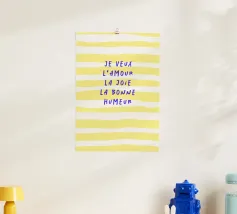 JE VEUX
L'AMOUR
LA JOIE
LA BONNE
HUMEUR